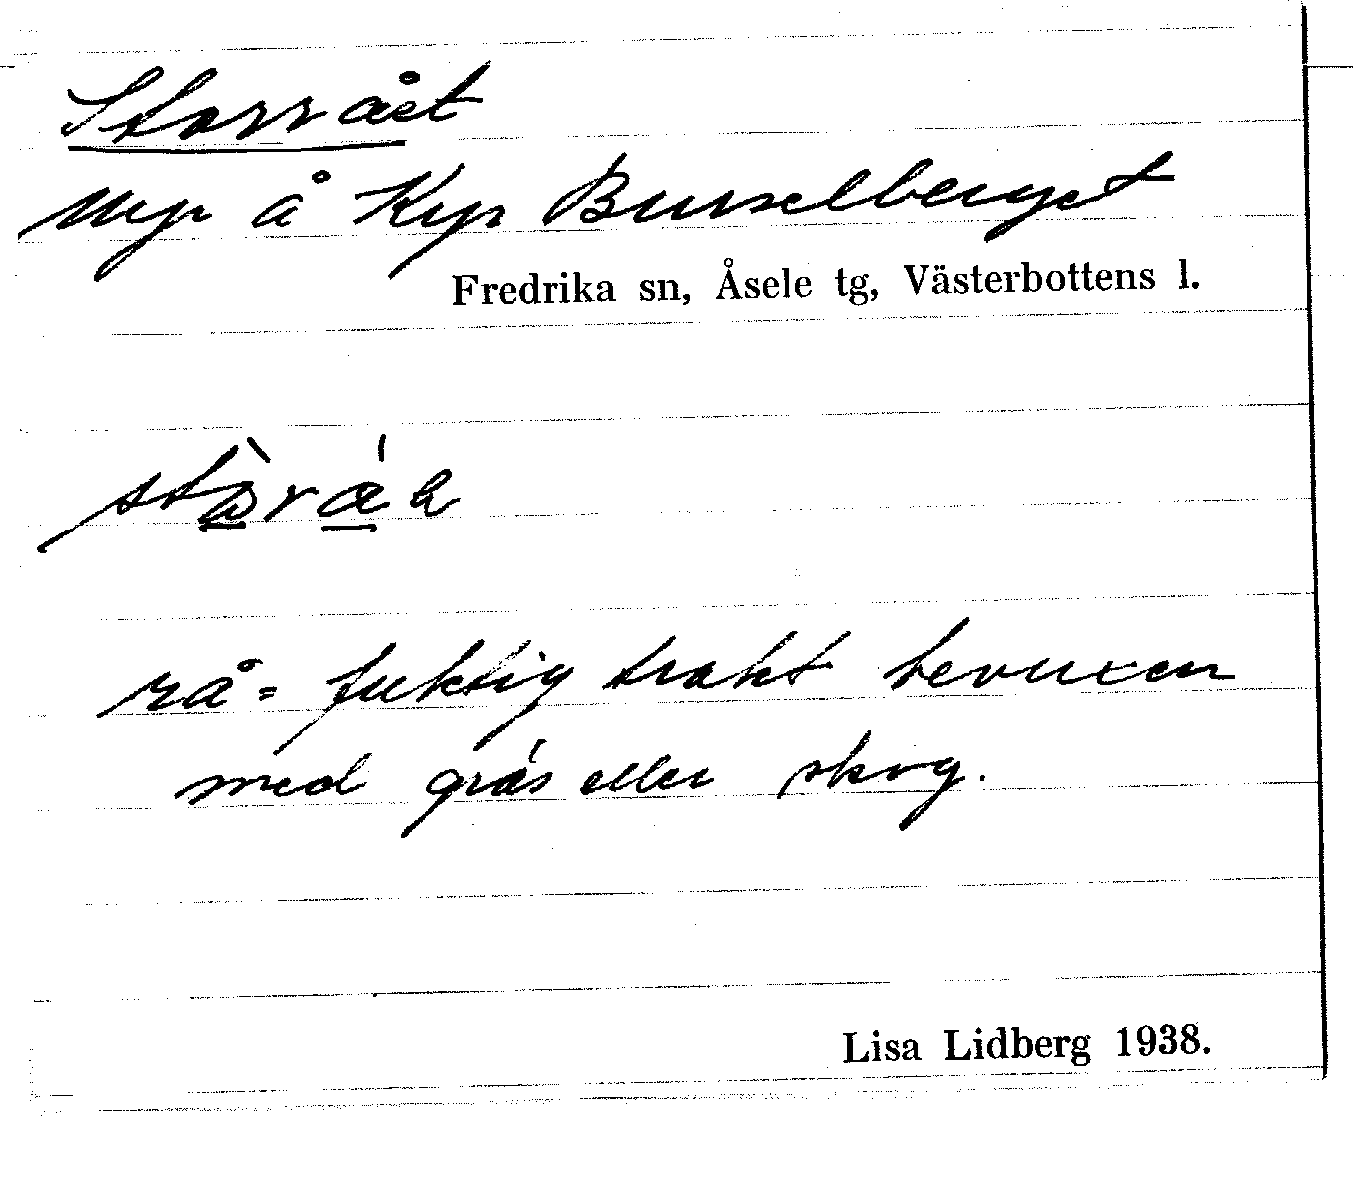 Storrået
Myr å Kyr Busselberget
Fredrika sn, Åsele tg, Västerbottens l.
rå = fuktig trakt bevuxen
med gräs eller skog.
Lisa Lidberg 1938.